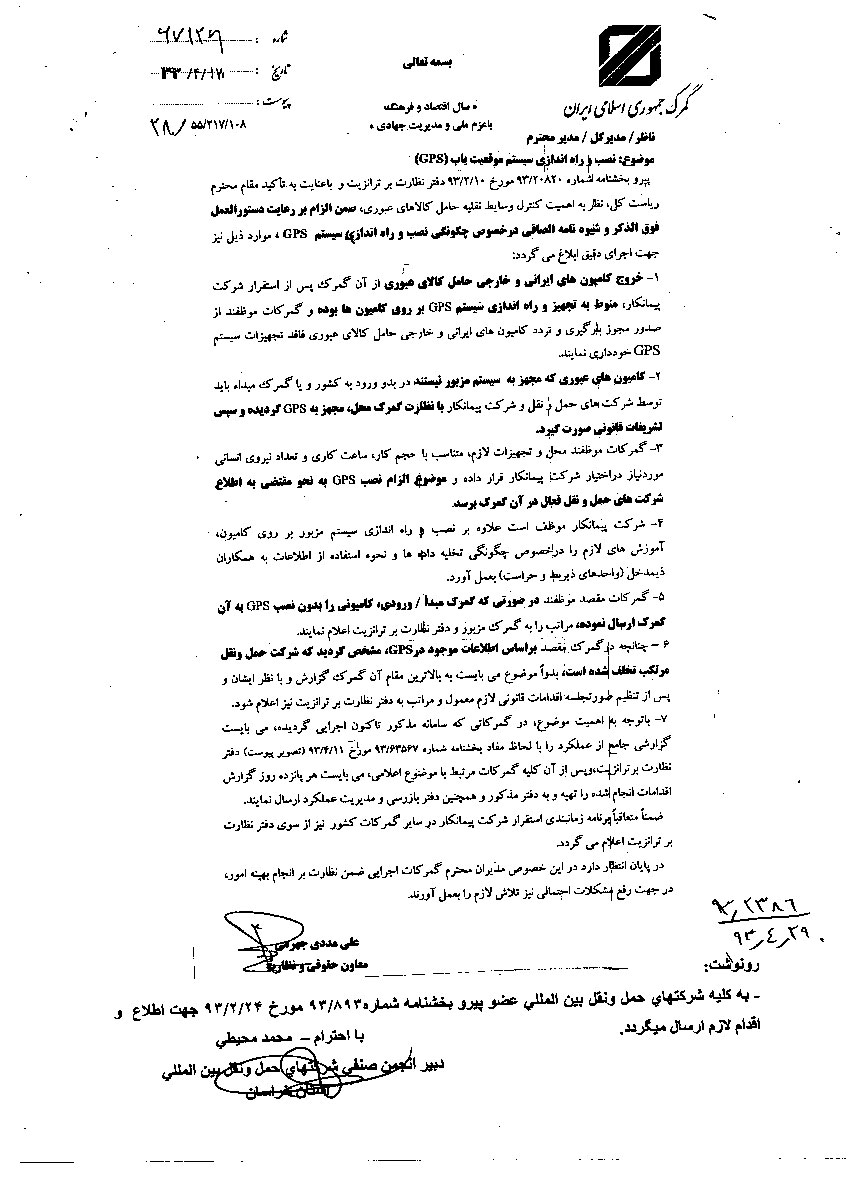 شماره :
تاریخ :
پیوست :
۵۵/۲۱۷/۱۰۸
بسمه تعالی
« سال اقتصاد و فرهنگ،
باعزم ملی و مدیریت جهادی »
گمرک جمهوری اسلامی ایران
ناظر/ مدیرکل / مدیر محترم
موضوع: نصب و راه اندازی سیستم موقعیت یاب (GPS)
پیرو بخشنامه شماره ۹۳/۲۰۸۲۰ مورخ ۹۳/۲/۱۰ دفتر نظارت بر ترانزیت و باعنایت به تأکید مقام محترم
ریاست کل، نظر به اهمیت کنترل وسایط نقلیه حامل کالاهای عبوری، ضمن الزام بر رعایت دستورالعمل
فوق الذکر و شیوه نامه الصاقی درخصوص چگونگی نصب و راه اندازی سیستم GPS ، موارد ذیل نیز
جهت اجرای دقیق ابلاغ می گردد:
۱- خروج کامیون های ایرانی و خارجی حامل کالای عبوری از آن گمرک پس از استقرار شرکت
پیمانکار، منوط به تجهیز و راه اندازی سیستم GPS بر روی کامیون ها بوده و گمرکات موظفند از
صدور مجوز بارگیری و تردد کامیون های ایرانی و خارجی حامل کالای عبوری فاقد تجهیزات سیستم
GPS خودداری نمایند.
۲- کامیون های عبوری که مجهز به سیستم مزبور نیستند در بدو ورود به کشور و یا گمرک مبداء باید
توسط شرکت های حمل و نقل و شرکت پیمانکار با نظارت گمرک محل، مجهز به GPS گردیده و سپس
تشریفات قانونی صورت گیرد.
۳- گمرکات موظفند محل و تجهیزات لازم، متناسب با حجم کار، ساعت کاری و تعداد نیروی انسانی
موردنیاز دراختیار شرکت پیمانکار قرار داده و موضوع الزام نصب GPS به نحو مقتضی به اطلاع
شرکت های حمل و نقل فعال در آن گمرک برسد.
۴- شرکت پیمانکار موظف است علاوه بر نصب و راه اندازی سیستم مزبور بر روی کامیون،
آموزش های لازم را درخصوص چگونگی تخلیه داده ها و نحوه استفاده از اطلاعات به همکاران
ذیمدخل (واحدهای ذیربط و حراست) بعمل آورد.
۵- گمرکات مقصد موظفند در صورتی که گمرک مبدأ / ورودی، کامیونی را بدون نصب GPS به آن
گمرک ارسال نموده، مراتب را به گمرک مزبور و دفتر نظارت بر ترانزیت اعلام نمایند.
۶ – چنانچه در گمرک مقصد براساس اطلاعات موجود درGPS، مشخص گردید که شرکت حمل ونقل
مرتکب تخلف شده است، بدواً موضوع می بایست به بالاترین مقام آن گمرک گزارش و با نظر ایشان و
پس از تنظیم صورتجلسه اقدامات قانونی لازم معمول و مراتب به دفتر نظارت بر ترانزیت نیز اعلام شود.
۷- باتوجه به اهمیت موضوع، در گمرکاتی که سامانه مذکور تاکنون اجرایی گردیده، می بایست
گزارشی جامع از عملکرد را با لحاظ مفاد بخشنامه شماره ۹۳/۶۳۵۶۷ مورخ ۹۳/۴/۱۱ (تصویر پیوست) دفتر
نظارت برترانزیت،وپس از آن کلیه گمرکات مرتبط با موضوع اعلامی، می بایست هر پانزده روز گزارش
اقدامات انجام شده را تهیه و به دفتر مذکور و همچنین دفتر بازرسی و مدیریت عملکرد ارسال نمایند.
ضمناً متعاقباً برنامه زمانبندی استقرار شرکت پیمانکار در سایر گمرکات کشور نیز از سوی دفتر نظارت
بر ترانزیت اعلام می گردد.
در پایان انتظار دارد در این خصوص مدیران محترم گمرکات اجرایی ضمن نظارت بر انجام بهینه امور،
در جهت رفع مشکلات احتمالی نیز تلاش لازم را بعمل آورند.
۹۳٫۴٫۲۹
علی مددی جهرمی
معاون حقوقی و نظارت
رونوشت:
- به کلیه شرکتهای حمل ونقل بین المللی عضو پیرو بخشنامه شماره۹۳/۸۹۳ مورخ ۹۳/۲/۲۴ جهت اطلاع و
اقدام لازم ارسال میگردد.
با احترام – محمد محیطی
دبیر انجمن صنفی شرکتهای حمل ونقل بین المللی
خراسان